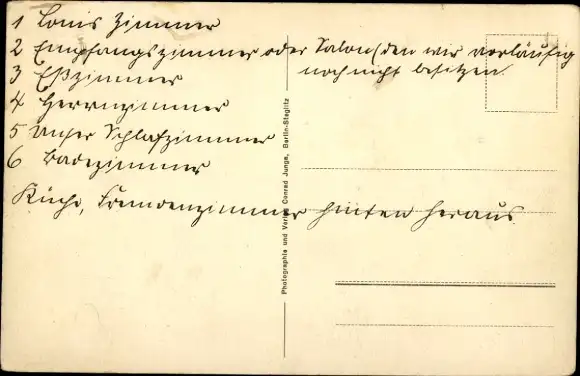 1 Louis Zimmer
2 Empfangszimmer oder Salon (den wir vorläufig
noch nicht besitzen.
3 Eßzimmer
4 Herrnzimmer
5 unser Schlafzimmer
6 Badezimmer
Küche, Fremdenzimmer hinten heraus.
Photographie und Verlag Conrad Junga, Berlin-Steglitz